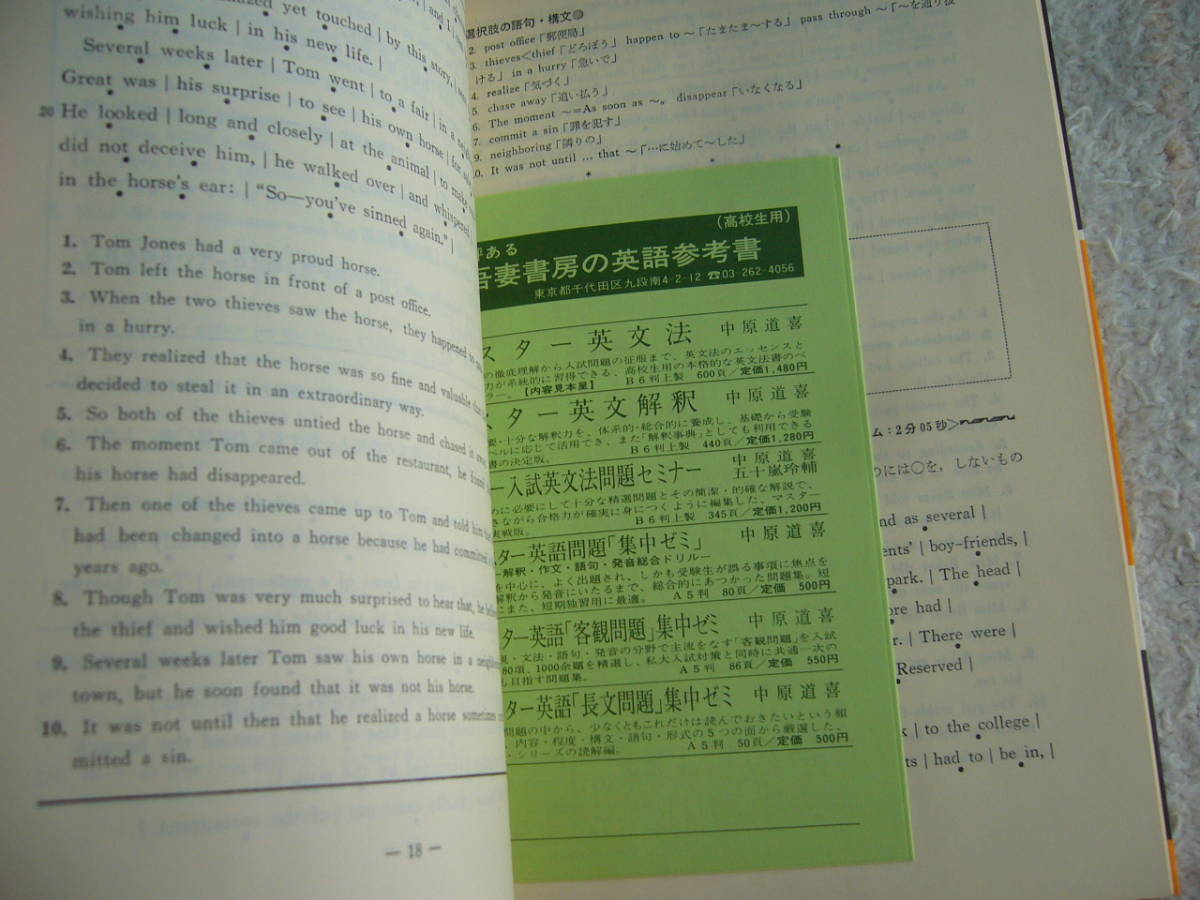 yet touched | by this story, |
wishing him luck | in his new life. |
Several weeks later | Tom went | to a fair | in a
Great was | his surprise | to see | his own horse | for
20 He looked | long and closely | at the animal | to make
did not deceive him, | he walked over | and whispered
in the horse's ear: | “So—you've sinned again.” |
1. Tom Jones had a very proud horse.
2. Tom left the horse in front of a post office.
3. When the two thieves saw the horse, they happened to
in a hurry.
4. They realized that the horse was so fine and valuable that
decided to steal it in an extraordinary way.
5. So both of the thieves untied the horse and chased it away.
6. The moment Tom came out of the restaurant, he found
his horse had disappeared.
7. Then one of the thieves came up to Tom and told him
had been changed into a horse because he had committed
years ago.
8. Though Tom was very much surprised to hear that, he
the thief and wished him good luck in his new life.
9. Several weeks later Tom saw his own horse in a
town, but he soon found that it was not his horse.
10. It was not until then that he realized a horse sometimes
mitted a sin.
— 18 —
選択肢の語句・構文
2. post office「郵便局」
3. thieves<thief「どろぼう」 happen to ~「たまたま~する」 pass through ~「~を通り抜
ける」 in a hurry「急いで」
4. realize「気づく」
5. chase away「追い払う」
6. The moment ~=As soon as ~。 disappear「いなくなる」
7. commit a sin「罪を犯す」
9. neighboring「隣りの」
10. It was not until … that ~「…に始めて~した」
(高校生用)
ある
吾妻書房の英語参考書
東京都千代田区九段南4-2-12 ☎03-262-4056
スター英文法 中原道喜
の徹底理解から入試問題の征服まで、英文法のエッセンスと
力が系統的に習得できる、高校生用の本格的な英文法書のベ
ラー。【内容見本呈】 B6判上製 600頁/定価1,480円
スター英文解釈 中原道喜
要・十分な解釈力を、体系的・総合的に養成し、基礎から受験
ベルに応じて活用でき、また「解釈事典」としても利用できる
書の決定版。 B6判上製 440頁/定価1,280円
ー入試英文法問題セミナー 中原道喜
五十嵐玲輔
めに必要にして十分な精選問題とその簡潔・的確な解説で、
きながら合格力が確実に身につくように編集した、マスター
実戦版。 B6判上製 345頁/定価1,200円
スター英語問題「集中ゼミ」 中原道喜
ー解釈・作文・語句・発音総合ドリルー
を中心に、よく出題され、しかも受験生が誤る事項に焦点を
解釈から発音にいたるまで、総合的にあつかった問題集。短
にまた、短期独習用に最適。 A5判 80頁/定価 500円
ター英語「客観問題」集中ゼミ 中原道喜
・文法・語句・発音の分野で主流をなす「客観問題」を入試
80項、1000余題を精選し、私大入試対策と同時に共通一次の
も目指す問題集。 A5判 86頁/定価 550円
ター英語「長文問題」集中ゼミ 中原道喜
問題の中から、少なくともこれだけは読んでおきたいという頻
、内容・程度・構文・語句・形式の5つの面から厳選した、
・シリーズの読解編。 A5判 50頁/定価 500円
ム:2分05秒
のには○を,しないもの
nd as several |
ents' | boy-friends, |
park. | The head |
ore had |
r. | There were |
Reserved |
k | to the college |
ts | had to | be in, |